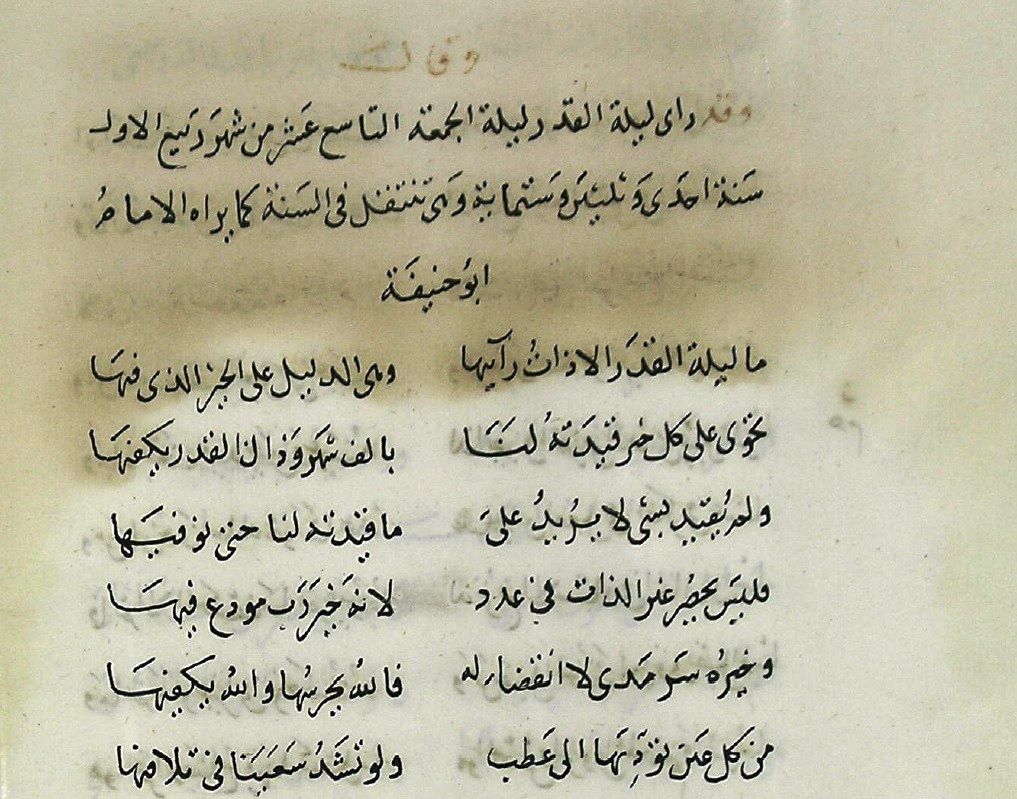 وقال
وقد راى ليلة القدر ليلة الجمعة التاسع عشر من شهر ربيع الاول
سنة احدى وثلثين وستماية وهى تنتقل فى السنة كما يراه الامام
ابو حنيفة
ما ليلة القدر الا ذات رآيها وهى الدليل على الخير الذى فيها
تحوى على كل خير قيدته لنا بالف شهر وذاك القدر يكفيها
ولم يقيد بشى لا يزيد على ما قيدته لنا حتى نوفيها
فليس يحصر عين الذات فى عدد لانه خير رب مودع فيها
وخيره سرمدى لا انقضاء له فالله يحرسها والله يكفيها
من كل عين تؤديها الى عطب ولو تشد سعينا فى تلافيها